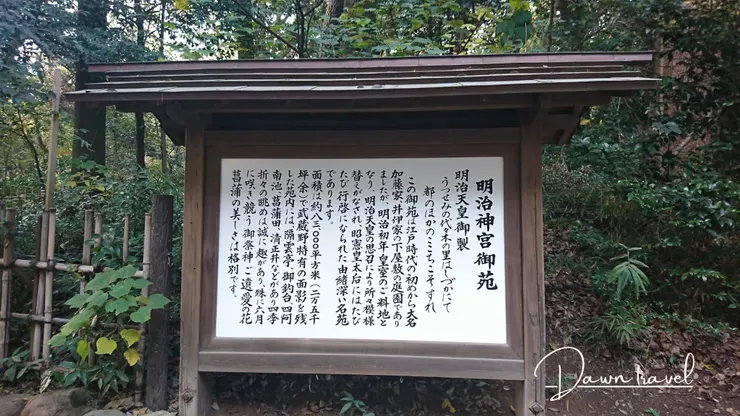 明治神宮御苑
明治天皇御製
うつせみの代々木の里はしづかにて
都のほかのここちこそすれ
この御苑は江戸時代の初めから大名
加藤家、井伊家の下屋敷の庭園であり
ましたが、明治初年皇室のご料地と
なり、明治天皇の思召により所々模様
替えがなされ、昭憲皇太后にはたび
たび行啓になられた由緒深い名苑
であります。
面積は約八三、〇〇〇平方米(二万五千
坪余)で武蔵野特有の面影を残
した苑内には、隔雲亭、御釣台、四阿
南池、菖蒲田、清正井などがあり四季
折々の眺めは誠に趣があり、殊に六月
に咲き競う御祭神ご遺愛の花
菖蒲の美しさは格別です。
Dawn travel